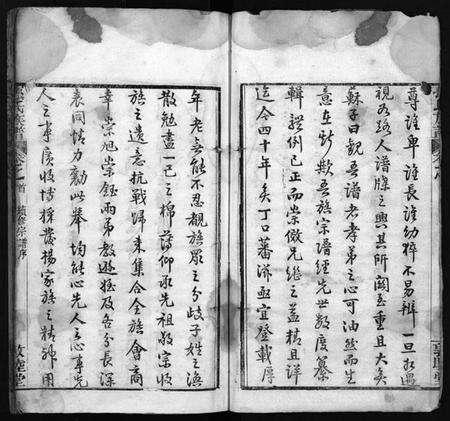 尊誰卑誰長誰幼猝不易辨一旦相遇
視為路人譜牒之興其所關至重且大矣
蘇子曰觀吾譜者孝弟之心可油然而生
意在斯歟吾族宗譜經先世數度纂
輯體例已正而崇儆兄繼之益精且詳
迄今四十年矣丁口蕃洐亟宜登載厚
年老吾能不忍覩族眾之分岐子姓之渙
散勉盡一己之棉薄仰承先祖敬宗收
族之遺意抗戰歸來集合全族會商
幸崇旭崇鈺兩弟教遊姪及各分長深
表同情力勷此舉均能心先人之心事先
人之事廣收博採發揚家族之精神用
卷之首
續修宗譜序
敦睦堂